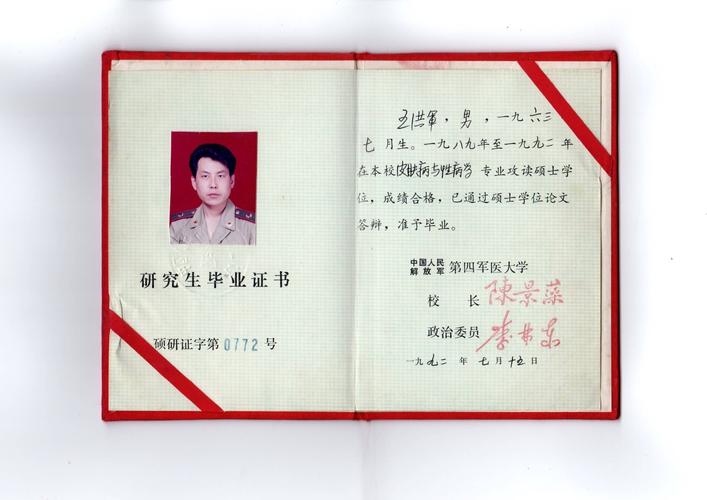 研究生毕业证书
硕研证字第0772号
王洪军，男，一九六三
七月生。一九八九年至一九九二年
在本校皮肤病与性病学专业攻读硕士学
位，成绩合格，已通过硕士学位论文
答辩，准予毕业。
中国人民解放军第四军医大学
校 长 陳景藻
政治委员
一九九二年七月十五日